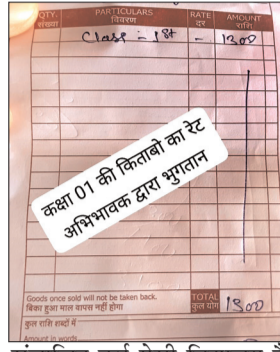 QTY. PARTICULARS RATE AMOUNT
संख्या विवरण दर राशि
Class - 1st - 1300
कक्षा 01 की किताबो का रेट
अभिभावक द्वारा भुगतान
Goods once sold will not be taken back.
बिका हुआ माल वापस नहीं होगा
TOTAL
कुल योग 1300
कुल राशि शब्दों में
Amount in words